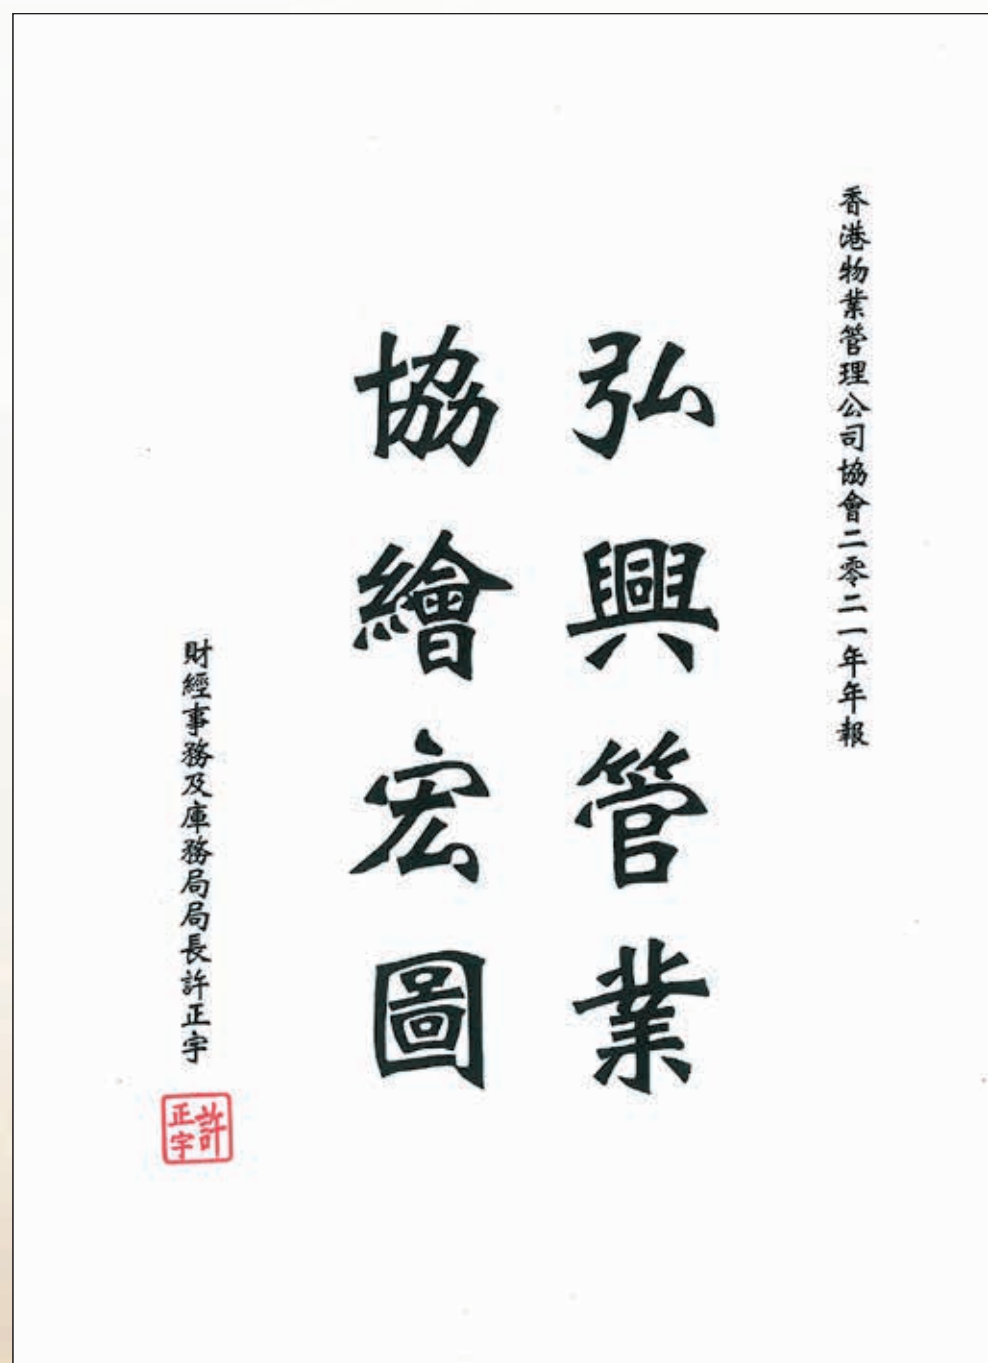 香港物業管理公司協會二零二一年年報
弘興管業
協繪宏圖
財經事務及庫務局局長許正宇
許正宇